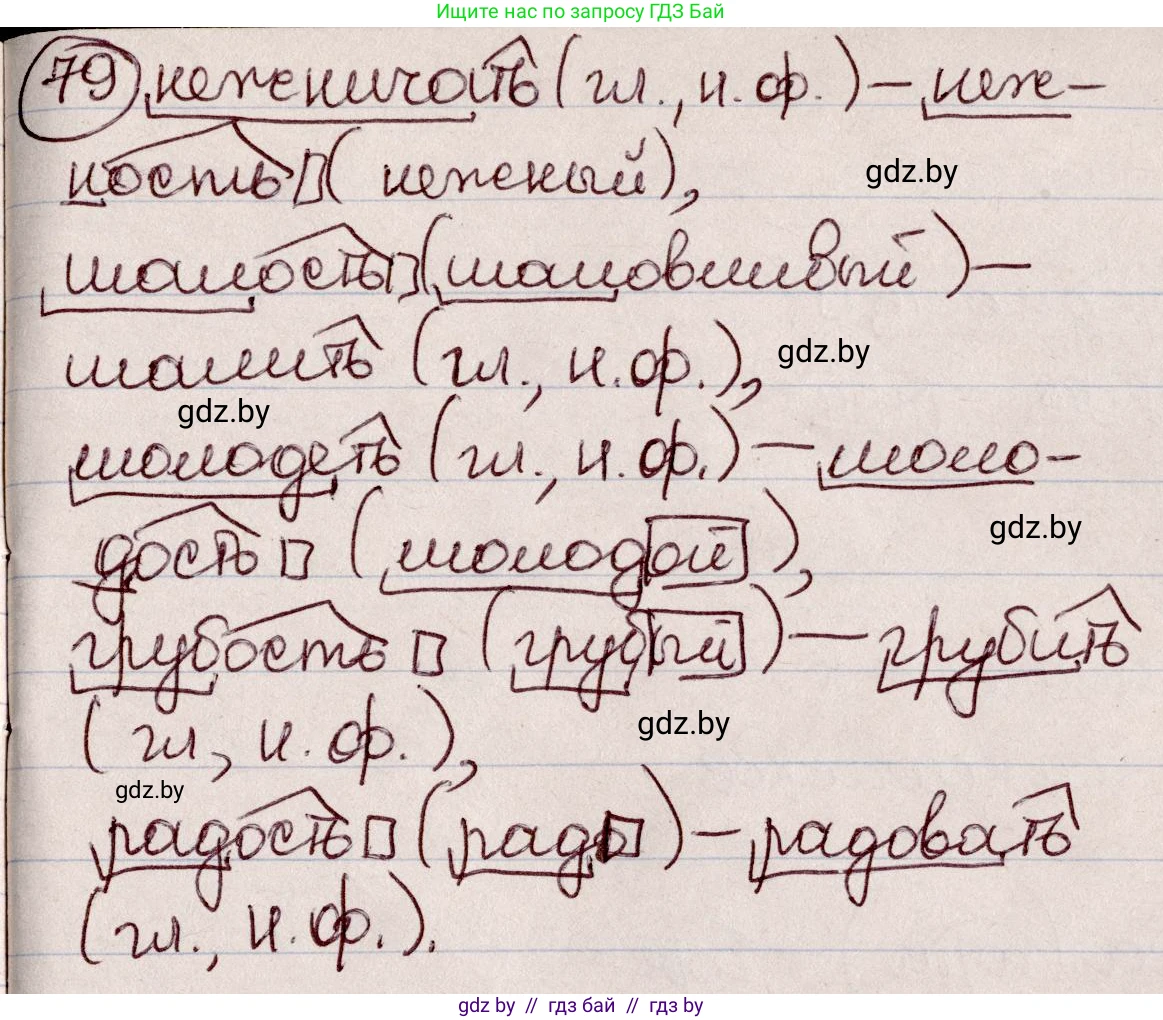 Ищите нас по запросу ГДЗ Бай
79 неженичать (гл., н. ф.) – неж-
ность (нежный),
gdz.by
шалость (шаловливый) –
шалить (гл., н. ф.),
gdz.by
gdz.by
молодеть (гл., н. ф.) – моло-
gdz.by
дость (молодой),
грубость (грубый) – грубить
(гл., н. ф.),
gdz.by
gdz.by
радость (рад) – радовать
(гл., н. ф.).
gdz by // гдз бай // гдз by